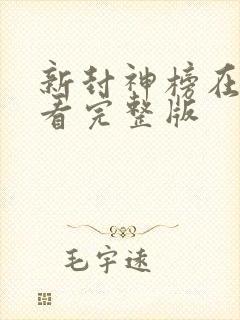 新封神榜在
看完整版
毛宇速